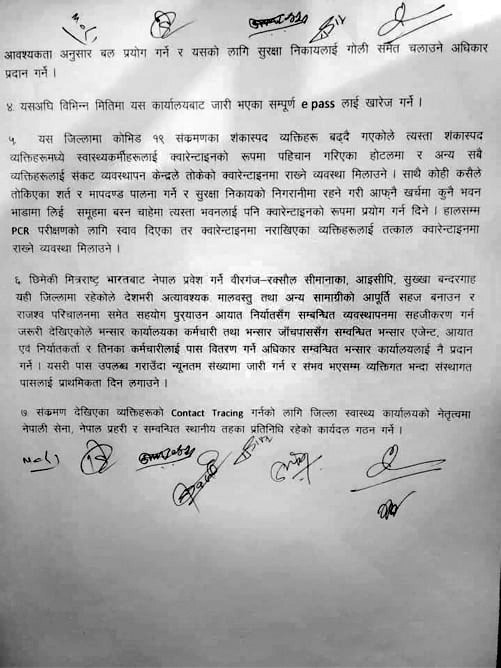 आवश्यकता अनुसार बल प्रयोग गर्न र यसको लागि सुरक्षा निकायलाई गोली समेत चलाउने अधिकार
प्रदान गर्ने ।
४. यसअघि विभिन्न मितिमा यस कार्यालयबाट जारी भएका सम्पूर्ण e pass लाई खारेज गर्ने ।
५. यस जिल्लामा कोभिड १९ संक्रमणका शंकास्पद व्यक्तिहरू बढ्दै गएकोले त्यस्ता शंकास्पद
व्यक्तिहरूमध्ये स्वास्थ्यकर्मीहरूलाई क्वारेन्टाइनको रूपमा पहिचान गरिएका होटलमा र अन्य सबै
व्यक्तिहरूलाई संकट व्यवस्थापन केन्द्रले तोकेको क्वारेन्टाइनमा राख्ने व्यवस्था मिलाउने । साथै कोही कसैले
तोकिएका शर्त र मापदण्ड पालना गर्ने र सुरक्षा निकायको निगरानीमा रहने गरी आफ्नै खर्चमा कुनै भवन
भाडामा लिई समूहमा बस्न चाहेमा त्यस्ता भवनलाई पनि क्वारेन्टाइनको रूपमा प्रयोग गर्न दिने । हालसम्म
PCR परीक्षणको लागि स्वाव दिएका तर क्वारेन्टाइनमा नराखिएका व्यक्तिहरूलाई तत्काल क्वारेन्टाइनमा
राख्ने व्यवस्था मिलाउने ।
६. छिमेकी मित्रराष्ट्र भारतबाट नेपाल प्रवेश गर्ने वीरगंज-रक्सौल सीमानाका, आइसीपि, सुख्खा बन्दरगाह
यही जिल्लामा रहेकोले देशभरी अत्यावश्यक मालवस्तु तथा अन्य सामाग्रीको आपूर्ति सहज बनाउन र
राजश्व परिचालनमा समेत सहयोग पुर्‍याउन आयात निर्यातसँग सम्बन्धित व्यवस्थापनमा सहजीकरण गर्न
जरूरी देखिएकोले भन्सार कार्यालयका कर्मचारी तथा भन्सार जाँचपाससँग सम्वन्धित भन्सार एजेन्ट, आयात
एवं निर्यातकर्ता र तिनका कर्मचारीलाई पास वितरण गर्ने अधिकार सम्वन्धित भन्सार कार्यालयलाई नै प्रदान
गर्ने । यसरी पास उपलब्ध गराउँदा न्यूनतम संख्यामा जारी गर्न र संभव भएसम्म व्यक्तिगत भन्दा संस्थागत
पासलाई प्राथमिकता दिन लगाउने ।
७. संक्रमण देखिएका व्यक्तिहरूको Contact Tracing गर्नको लागि जिल्ला स्वास्थ्य कार्यालयको नेतृत्वमा
नेपाली सेना, नेपाल प्रहरी र सम्वन्धित स्थानीय तहका प्रतिनिधि रहेको कार्यदल गठन गर्ने ।